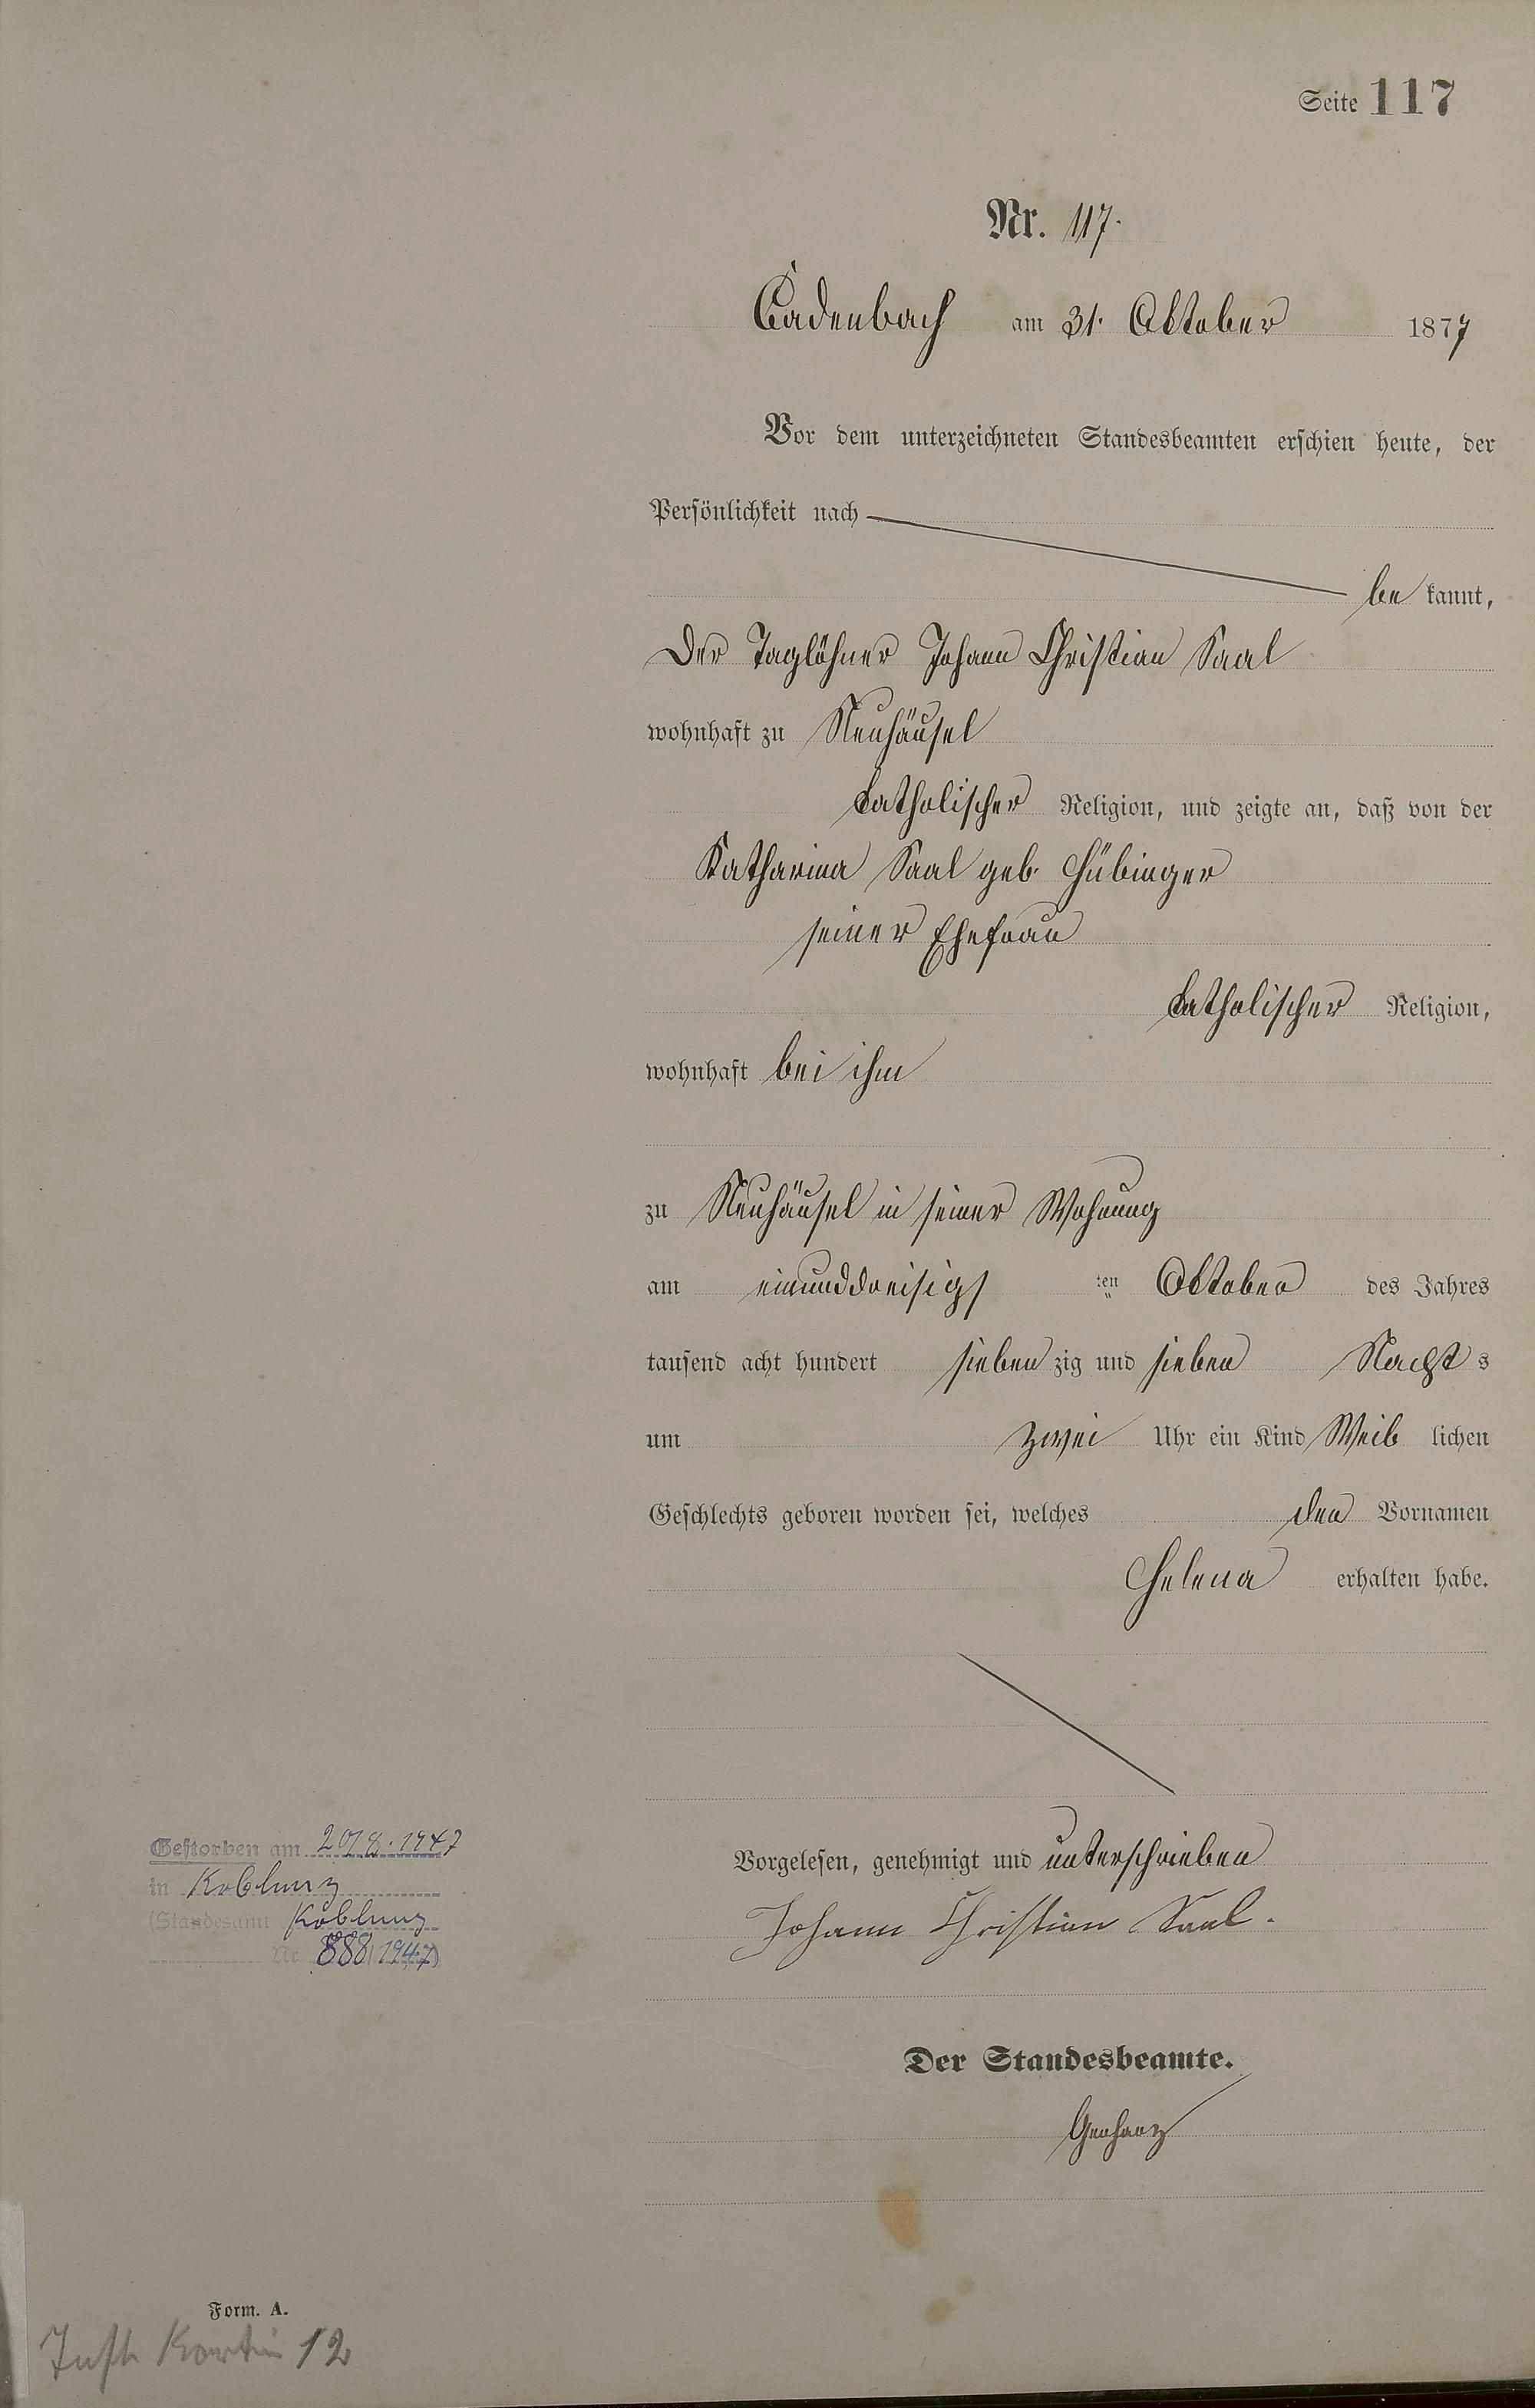 Seite 117
Nr. 117.
Cadenbach am 31. Oktober 1877
Vor dem unterzeichneten Standesbeamten erschien heute, der
Persönlichkeit nach
be kannt,
Der Taglöhner Johann Christian Saal
wohnhaft zu Neuhäusel
katholischer Religion, und zeigte an, daß von der
Katharina Saal geb. Hübinger
seiner Ehefrau
katholischer Religion,
wohnhaft bei ihm
zu Neuhäusel in seiner Wohnung
am einunddreisigs ten Oktober des Jahres
tausend acht hundert sieben zig und sieben Nacht s
um zwei Uhr ein Kind Weib lichen
Geschlechts geboren worden sei, welches den Vornamen
Helena erhalten habe.
Vorgelesen, genehmigt und unterschrieben
Johann Christian Saal.
Der Standesbeamte.
Gestorben am 20/8.1947
in Koblenz
(Standesamt Koblenz
Nr 888/1947)
Form. A.
12